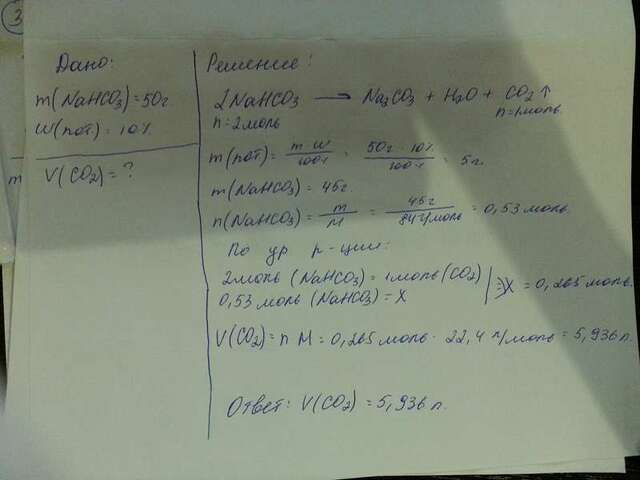 3
Дано:
m(NaHCO3)=50г
W(пот.)=10%
V(CO2)=?
Решение:
2NaHCO3 → Na2CO3 + H2O + CO2↑
n=2моль
n=1моль.
m(пот.) = m·W/100% = 50г·10%/100% = 5г.
m(NaHCO3)=45г.
n(NaHCO3)= m/M = 45г/84г/моль = 0,53моль.
По ур р-ции:
2моль (NaHCO3)=1моль(CO2)
0,53моль (NaHCO3)=X
⇒X = 0,265моль.
V(CO2)=n·M=0,265моль·22,4л/моль=5,936л.
Ответ: V(CO2)=5,936л.
m